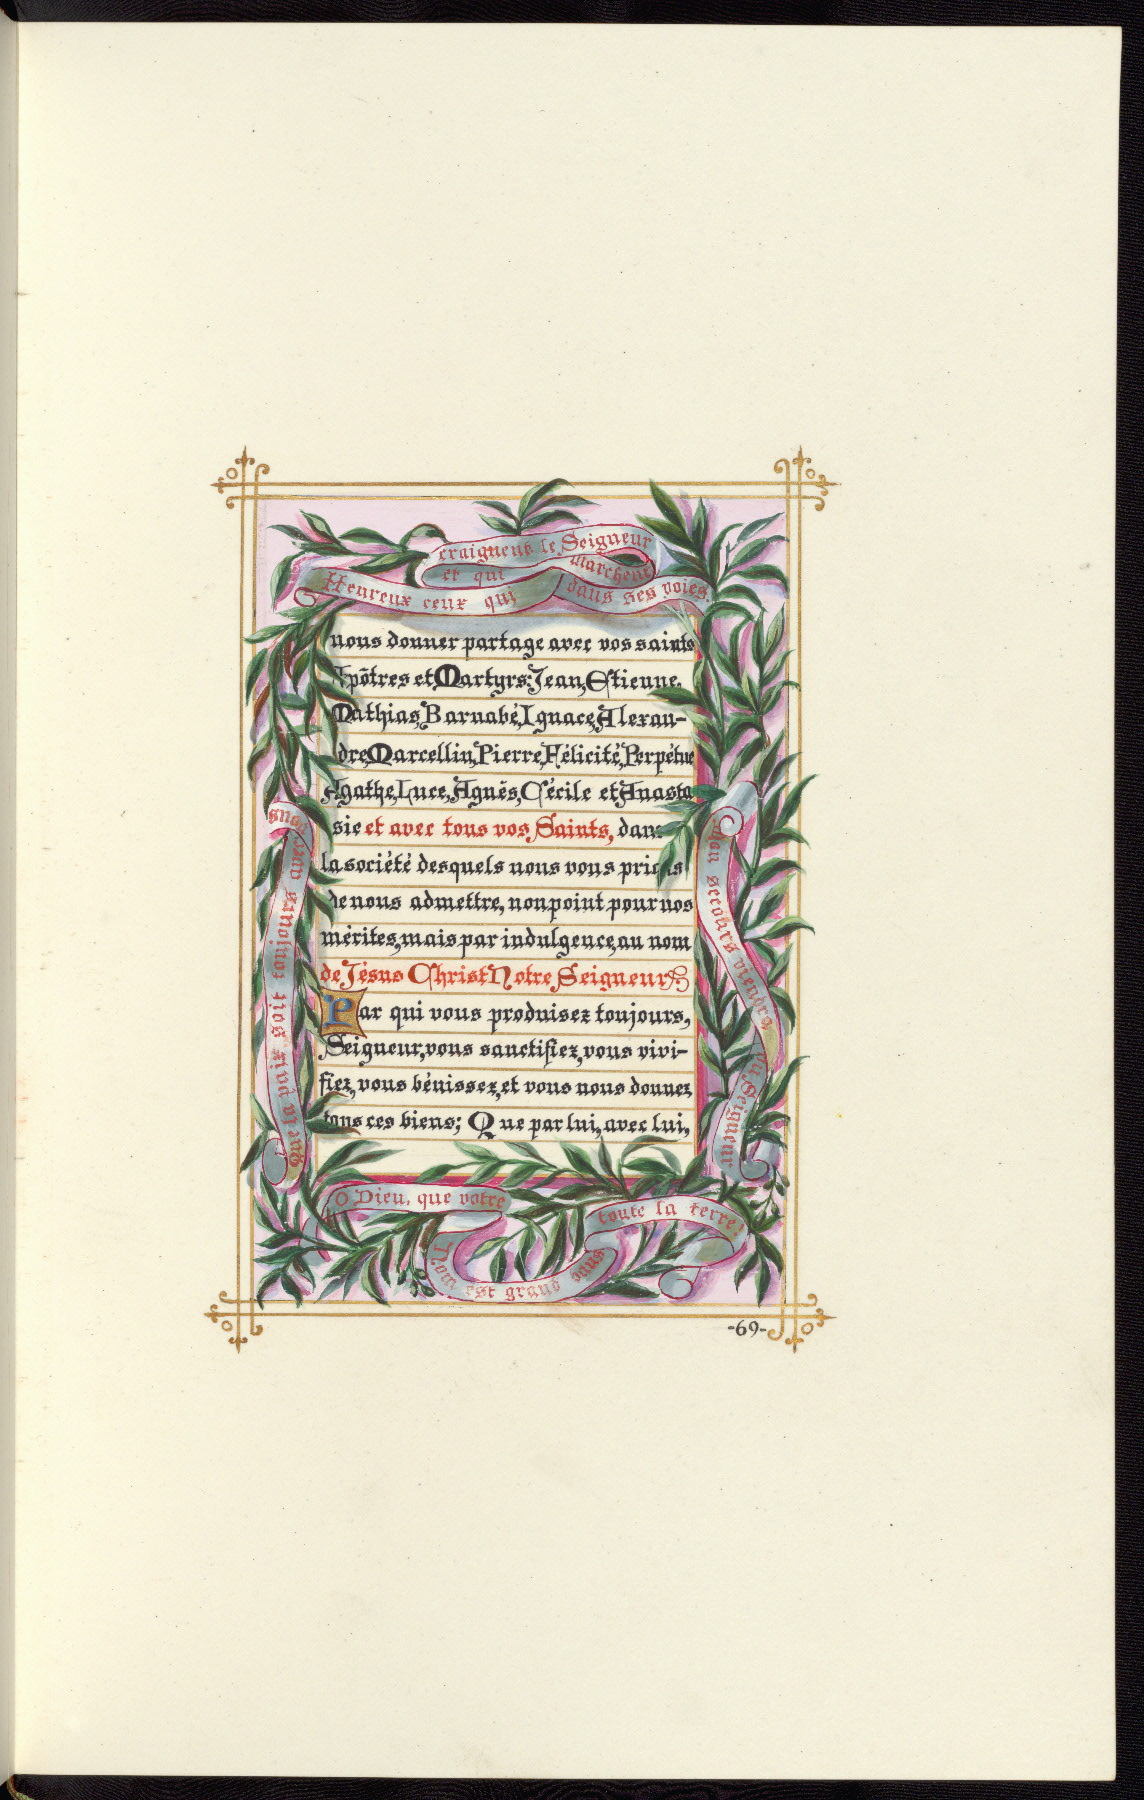 craignent le Seigneur
et qui marchent
Heureux ceux qui dans ses voies
nous donner partage avec vos saints
Apõtres et Martyrs: Jean, Etienne,
Mathias, Barnabé, Ignace, Alexan-
dre, Marcellin, Pierre, Félicité, Perpétue
Agathe, Luce, Agnès, Cécile et Anasta
sie et avec tous vos Saints, dans
la société desquels nous vous prions
de nous admettre, non point pour nos
mérites, mais par indulgence, au nom
de Jésus Christ Notre Seigneur.
Par qui vous produisez toujours,
Seigneur, vous sanctifiez, vous vivi-
fiez, vous bénissez, et vous nous donnez
tous ces biens; Que par lui, avec lui,
Que la paix soit toujours avec vous
Mon secours viendra du Seigneur
O Dieu, que votre
Nom est grand dans
toute la terre!
-69-